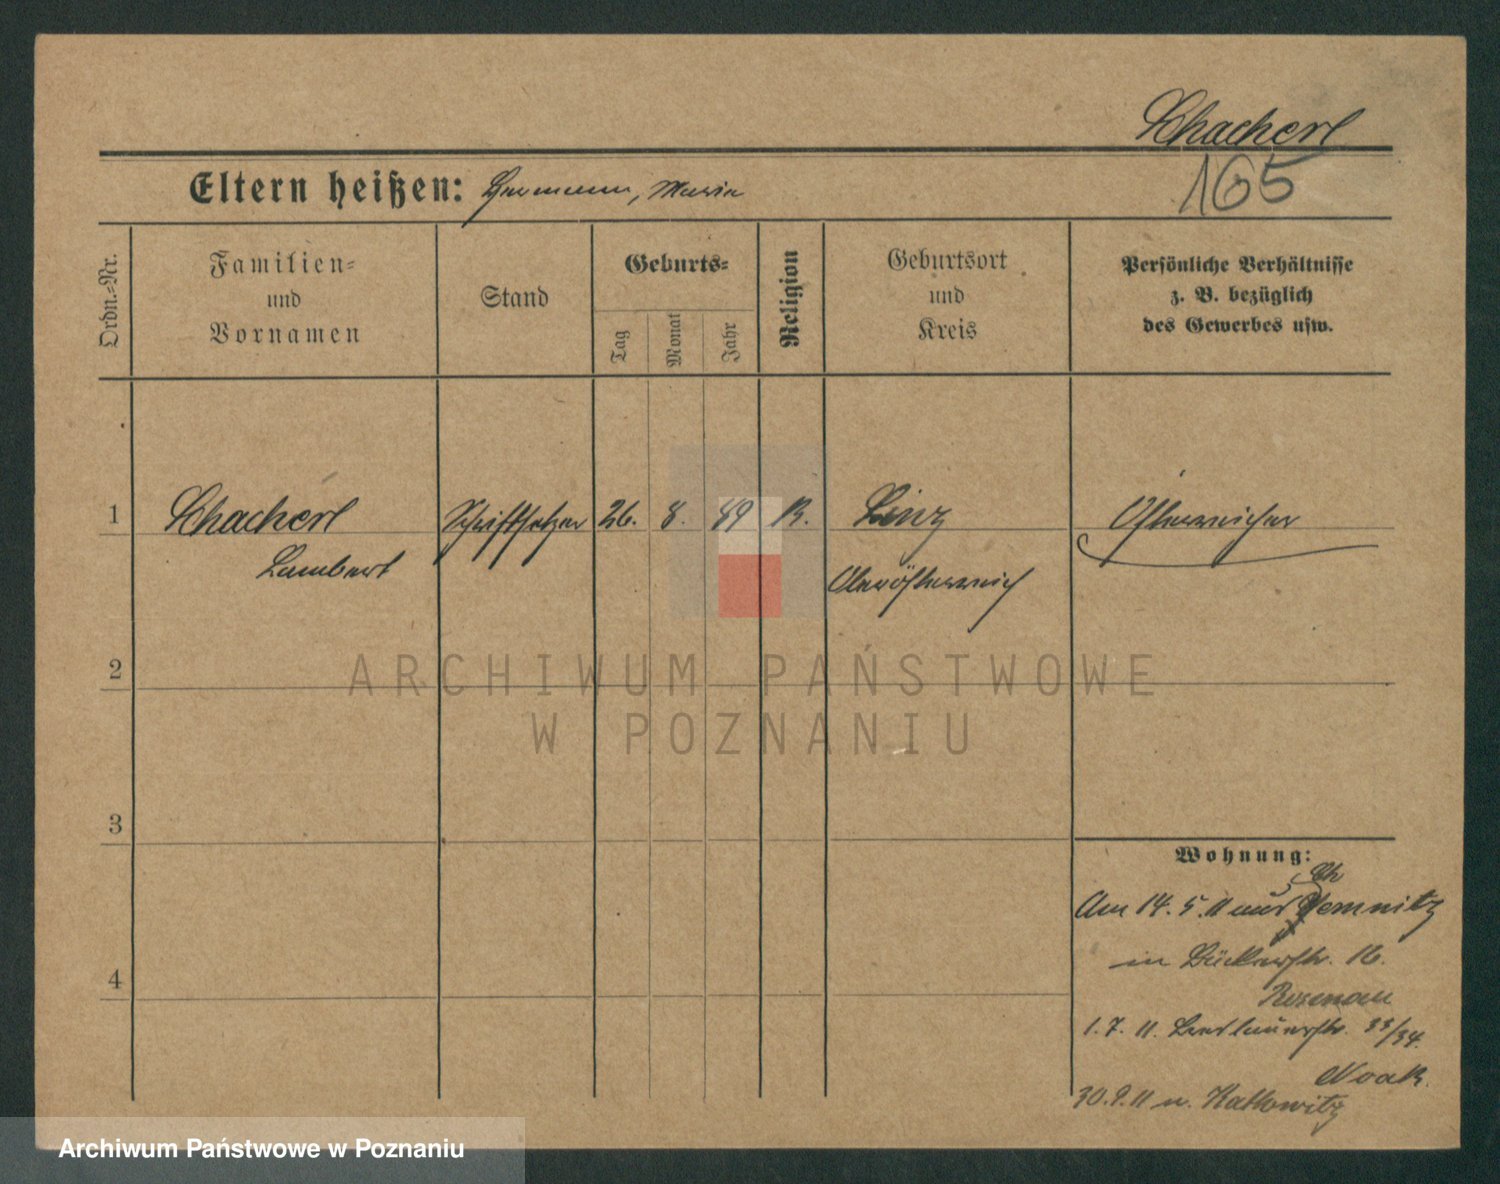 Schacherl
165
Eltern heißen: Hermann, Maria
Ordn.-Nr.
Familien-
und
Vornamen
Stand
Geburts-
Tag
Monat
Jahr
Religion
Geburtsort
und
Kreis
Persönliche Verhältnisse
z. B. bezüglich
des Gewerbes usw.
1 Schacherl Schriftsetzer 26. 8. 89 K. Linz Österreicher
Lambert Oberösterreich
ARCHIWUM PAŃSTWOWE
W POZNANIU
2
3
4
Wohnung:
Ch
Am 14. 5. 11 aus Chemnitz
in Bäckerstr. 16.
Rosenau
1. 7. 11. 33/34.
Noak
30. 9. 11 n. Kattowitz
Archiwum Państwowe w Poznaniu